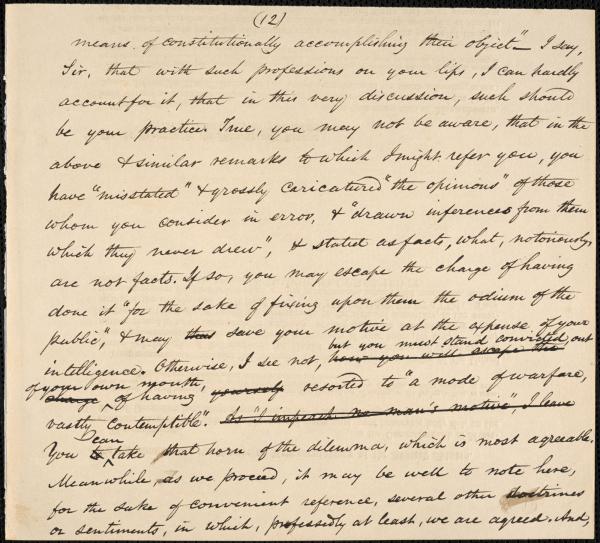 (12)
means of constitutionally accomplishing their object" — I say,
Sir, that with such professions on your lips, I can hardly
account for it, that in this very discussion, such should
be your practice. True, you may not be aware, that in the
above & similar remarks to which I might refer you, you
have "misstated" & grossly caricatured "the opinions" of those
whom you consider in error, & "drawn inferences from them
which they never drew", & stated as facts, what, notoriously,
are not facts. If so, you may escape the charge of having
done it "for the sake of fixing upon them the odium of the
public", & may thus save your motive at the expense of your
but you must stand convicted, out
intelligence. Otherwise, I see not, how you will escape the
of your own mouth,
charge of having yourself resorted to "a mode of warfare,
vastly contemptible". As "I impeach no man's motive", I leave
can
You to take that horn of the dilemma, which is most agreeable.
Meanwhile, as we proceed, it may be well to note here,
for the sake of convenient reference, several other doctrines
or sentiments, in which, professedly at least, we are agreed. And,